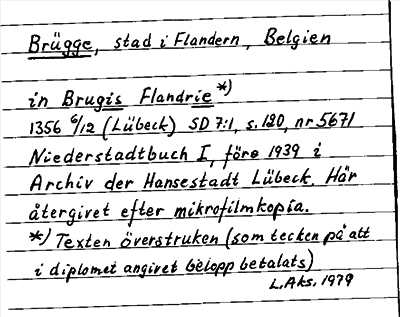 Brügge, stad i Flandern, Belgien
in Brugis Flandrie *)
1356 6/12 (Lübeck) SD 7:1, s. 120, nr 5671
Niederstadtbuch I, före 1939 i
Archiv der Hansestadt Lübeck. Här
återgivet efter mikrofilmkopia.
*) Texten överstruken (som tecken på att
i diplomet angivet belopp betalats)
L. Aks. 1979